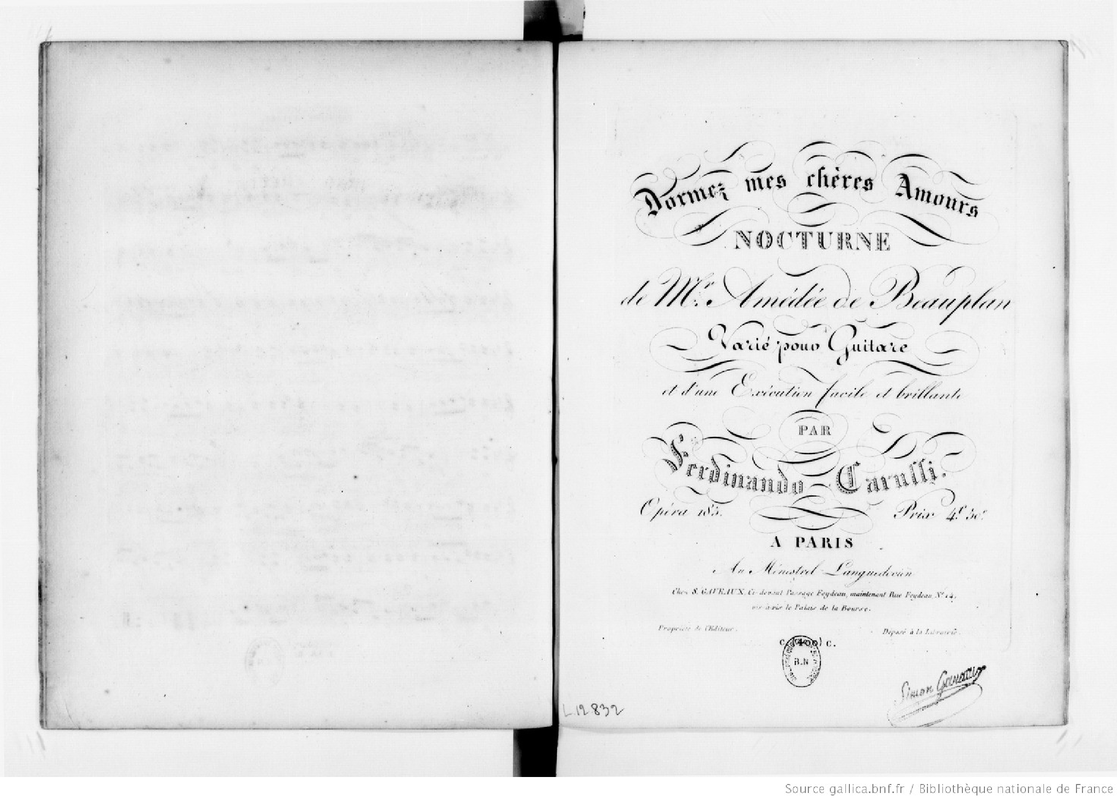 Dormez mes chères Amours
NOCTURNE
de Mr. Amédée de Beauplan
Varié pour Guitare
et d'une Exécution facile et brillante
PAR
Ferdinando Carulli.
Opéra 185. Prix 4f 50c
A PARIS
Au Ménestrel Languedocien
Chez S. GAVEAUX, Ci-devant Passage Feydeau, maintenant Rue Feydeau, No.
vis à vis le Palais de la Bourse.
Propriété de l'Editeur. Déposé à la Librairie.
C. C.
B.N
Simon Gaveaux
L 12 832
Source gallica.bnf.fr / Bibliothèque nationale de France